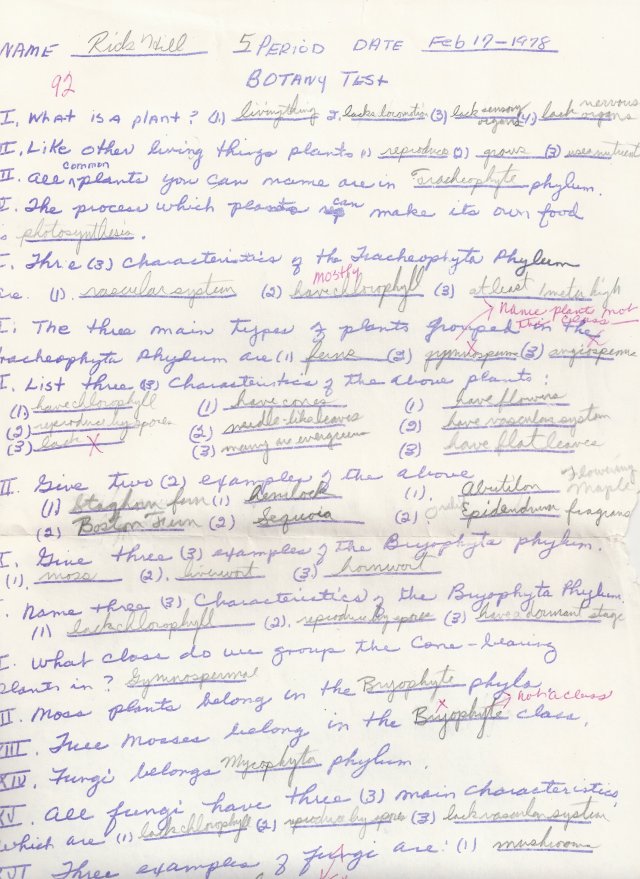 NAME Rick Hill 5 PERIOD DATE Feb 17-1978
92
BOTANY TEST
I. What is a plant? (1) living thing 2. lacks locomotion (3) lack sensory organs (4) lack nervous organs
II. Like other living things plants 1) reproduce (2) grows (3) use nutrients
II. All common plants you can name are in Tracheophyte phylum.
I. The process which plants can make its own food
is photosynthesis.
I. Three (3) Characteristics of the Tracheophyta Phylum
are. (1). vascular system (2) mostly have chlorophyll (3) at least 1 meter high
Name plant not the class
I: The three main types of plants grouped in the
Tracheophyta Phylum are (1) ferns (2) gymnosperms (3) angiosperms
I. List three (3) Characteristics of the above plants:
(1) have chlorophyll (1) have cones (1) have flowers
(2) reproduce by spores (2) needle-like leaves (2) have vascular system
(3) lack X (3) many are evergreens (3) have flat leaves
II. Give two (2) examples of the above
(1) Staghorn fern (1) Hemlock (1). Abutilon Flowering Maple
(2) Boston Fern (2) Sequoia (2) Epidendrum fragrans
I. Give three (3) examples of the Bryophyta phylum.
(1). moss (2). liverwort (3) hornwort
. Name three (3) Characteristics of the Bryophyta Phylum.
(1) lack chlorophyll (2). reproduce by spores (3) have dormant stage
I. What class do we group the Cone-bearing
plants in? Gymnospermae
II. Moss plants belong in the Bryophyte phyla
X not a class
VIII. True Mosses belong in the Bryophyte class.
XIV. Fungi belongs Mycophyta phylum.
XV. All fungi have three (3) main characteristics,
which are (1) lack chlorophyll (2) reproduce by spores (3) lack vascular system
XVI Three examples of fungi are: (1) mushrooms